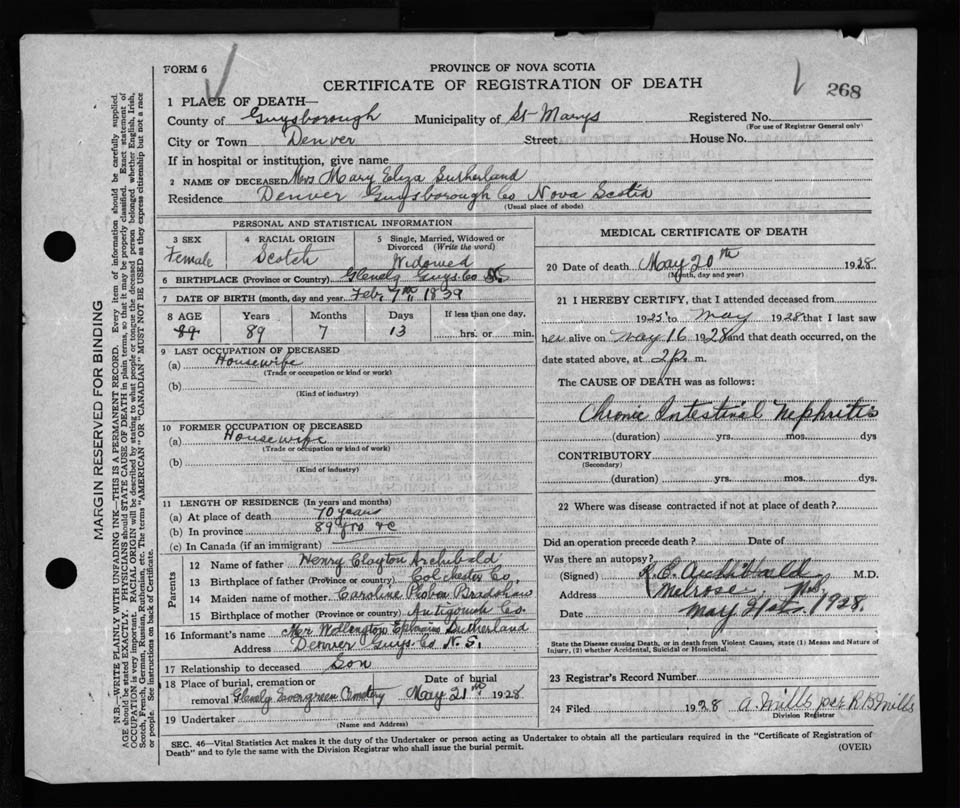 FORM 6
PROVINCE OF NOVA SCOTIA
CERTIFICATE OF REGISTRATION OF DEATH
268
1 PLACE OF DEATH—
County of Guysborough Municipality of St Marys Registered No.
(For use of Registrar General only)
City or Town Denver Street House No.
If in hospital or institution, give name
2 NAME OF DECEASED Mrs Mary Eliza Sutherland
Residence Denver Guysborough Co Nova Scotia
(Usual place of abode)
PERSONAL AND STATISTICAL INFORMATION
3 SEX 4 RACIAL ORIGIN 5 Single, Married, Widowed or Divorced (Write the word)
Female Scotch Widowed
6 BIRTHPLACE (Province or Country) Glenelg Guys. Co NS
7 DATE OF BIRTH (month, day and year) Feb, 7th, 1839
8 AGE Years Months Days If less than one day,
89 89 7 13 hrs. or min.
9 LAST OCCUPATION OF DECEASED
(a) Housewife
(Trade or occupation or kind or work)
(b)
(Kind of industry)
10 FORMER OCCUPATION OF DECEASED
(a) Housewife
(Trade or occupation or kind of work)
(b)
(Kind of industry)
11 LENGTH OF RESIDENCE (In years and months)
(a) At place of death 70 years
(b) In province 89 yrs &c
(c) In Canada (if an immigrant)
Parents
12 Name of father Henry Clayton Archibald
13 Birthplace of father (Province or country) Colchester Co,
14 Maiden name of mother Caroline Bradshaw
15 Birthplace of mother (Province or Country) Antigonish Co.
16 Informant's name Mr Ephraim Sutherland
Address Denver Guys. Co N. S.
17 Relationship to deceased Son
18 Place of burial, cremation or removal Date of burial
Glenelg Evergreen Cemetery May 21st 1928
19 Undertaker
(Name and Address)
MEDICAL CERTIFICATE OF DEATH
20 Date of death May 20th 1928
(Month, day and year)
21 I HEREBY CERTIFY, that I attended deceased from
1925 to May 1928 that I last saw
her alive on May 16 1928 and that death occurred, on the
date stated above, at 2 p. m.
The CAUSE OF DEATH was as follows:
Chronic Intestinal Nephritis
(duration) yrs. mos. dys
CONTRIBUTORY
(Secondary)
(duration) yrs. mos. dys.
22 Where was disease contracted if not at place of death?
Did an operation precede death? Date of
Was there an autopsy?
(Signed) Archibald M.D.
Address Melrose
Date May 21st, 1928.
State the Disease causing Death, or in death from Violent Causes, state (1) Means and Nature of
Injury, (2) whether Accidental, Suicidal or Homicidal.
23 Registrar's Record Number
24 Filed 1928 A. Mills per R B Mills
Division Registrar
SEC. 46—Vital Statistics Act makes it the duty of the Undertaker or person acting as Undertaker to obtain all the particulars required in the "Certificate of Registration of
Death" and to fyle the same with the Division Registrar who shall issue the burial permit. (OVER)
MARGIN RESERVED FOR BINDING
N.B.—WRITE PLAINLY WITH UNFADING INK—THIS IS A PERMANENT RECORD. Every item of information should be carefully supplied.
AGE should be stated EXACTLY. PHYSICIANS should STATE CAUSE OF DEATH in plain terms, so that it may be properly classified. Exact statement of
OCCUPATION is very important. RACIAL ORIGIN will be described by stating to what people or tongue the deceased person belonged whether English, Irish,
Scotch, French, German, Russian, Ruthenian, etc. The terms "AMERICAN" OR "CANADIAN" MUST NOT BE USED as they express citizenship but not a race
or people. See instructions on back of Certificate.